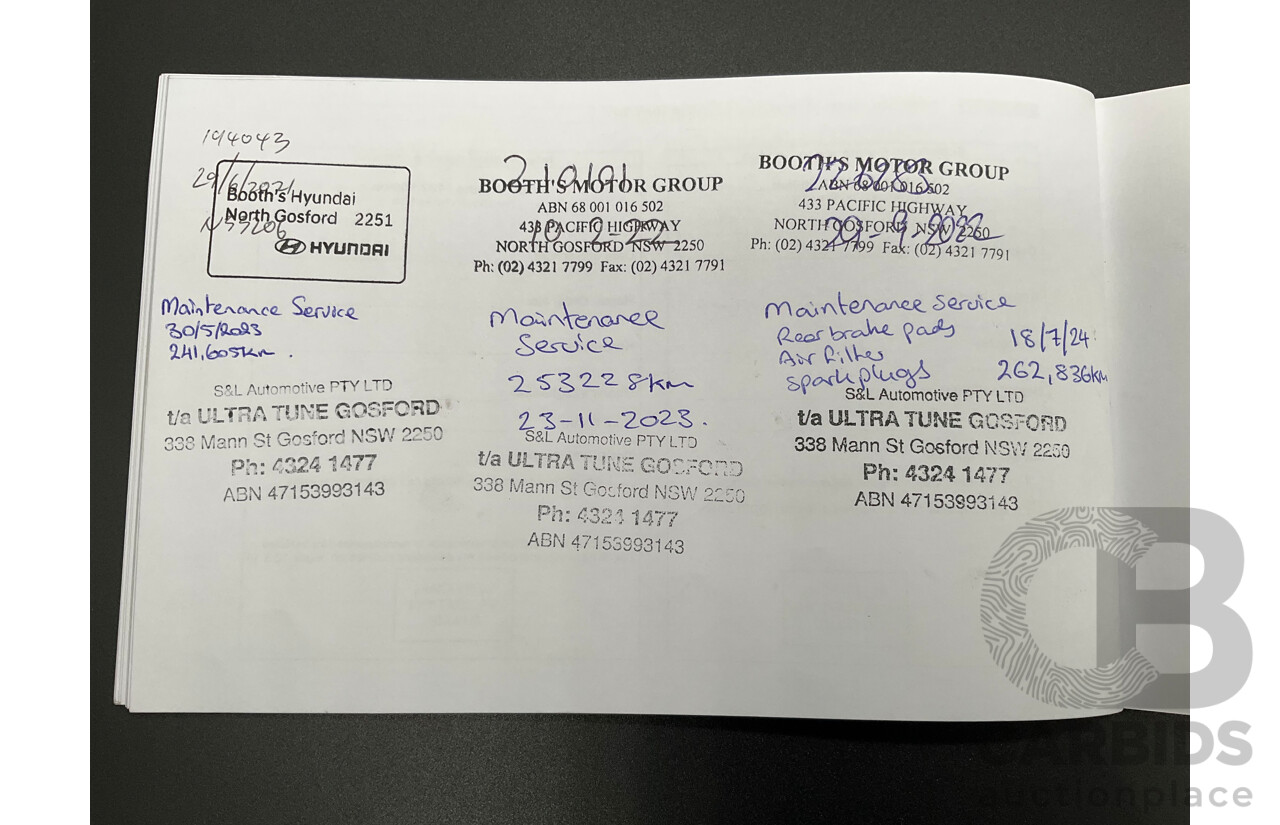 194043
29/6/2021
Booth's Hyundai
North Gosford 2251
HYUNDAI
Maintenance Service
30/5/2023
241,605km.
S&L Automotive PTY LTD
t/a ULTRA TUNE GOSFORD
338 Mann St Gosford NSW 2250
Ph: 4324 1477
ABN 47153993143
BOOTH'S MOTOR GROUP
ABN 68 001 016 502
433 PACIFIC HIGHWAY
NORTH GOSFORD NSW 2250
Ph: (02) 4321 7799 Fax: (02) 4321 7791
Maintenance
Service
253228km
23-11-2023.
S&L Automotive PTY LTD
t/a ULTRA TUNE GOSFORD
338 Mann St Gosford NSW 2250
Ph: 4324 1477
ABN 47153993143
BOOTH'S MOTOR GROUP
ABN 68 001 016 502
433 PACIFIC HIGHWAY
NORTH GOSFORD NSW 2250
29-9-2022
Ph: (02) 4321 7799 Fax: (02) 4321 7791
Maintenance Service
Rear brake pads 18/7/24
Air Filter
spark plugs 262,836km
S&L Automotive PTY LTD
t/a ULTRA TUNE GOSFORD
338 Mann St Gosford NSW 2250
Ph: 4324 1477
ABN 47153993143
CARBIDS
auctionplace